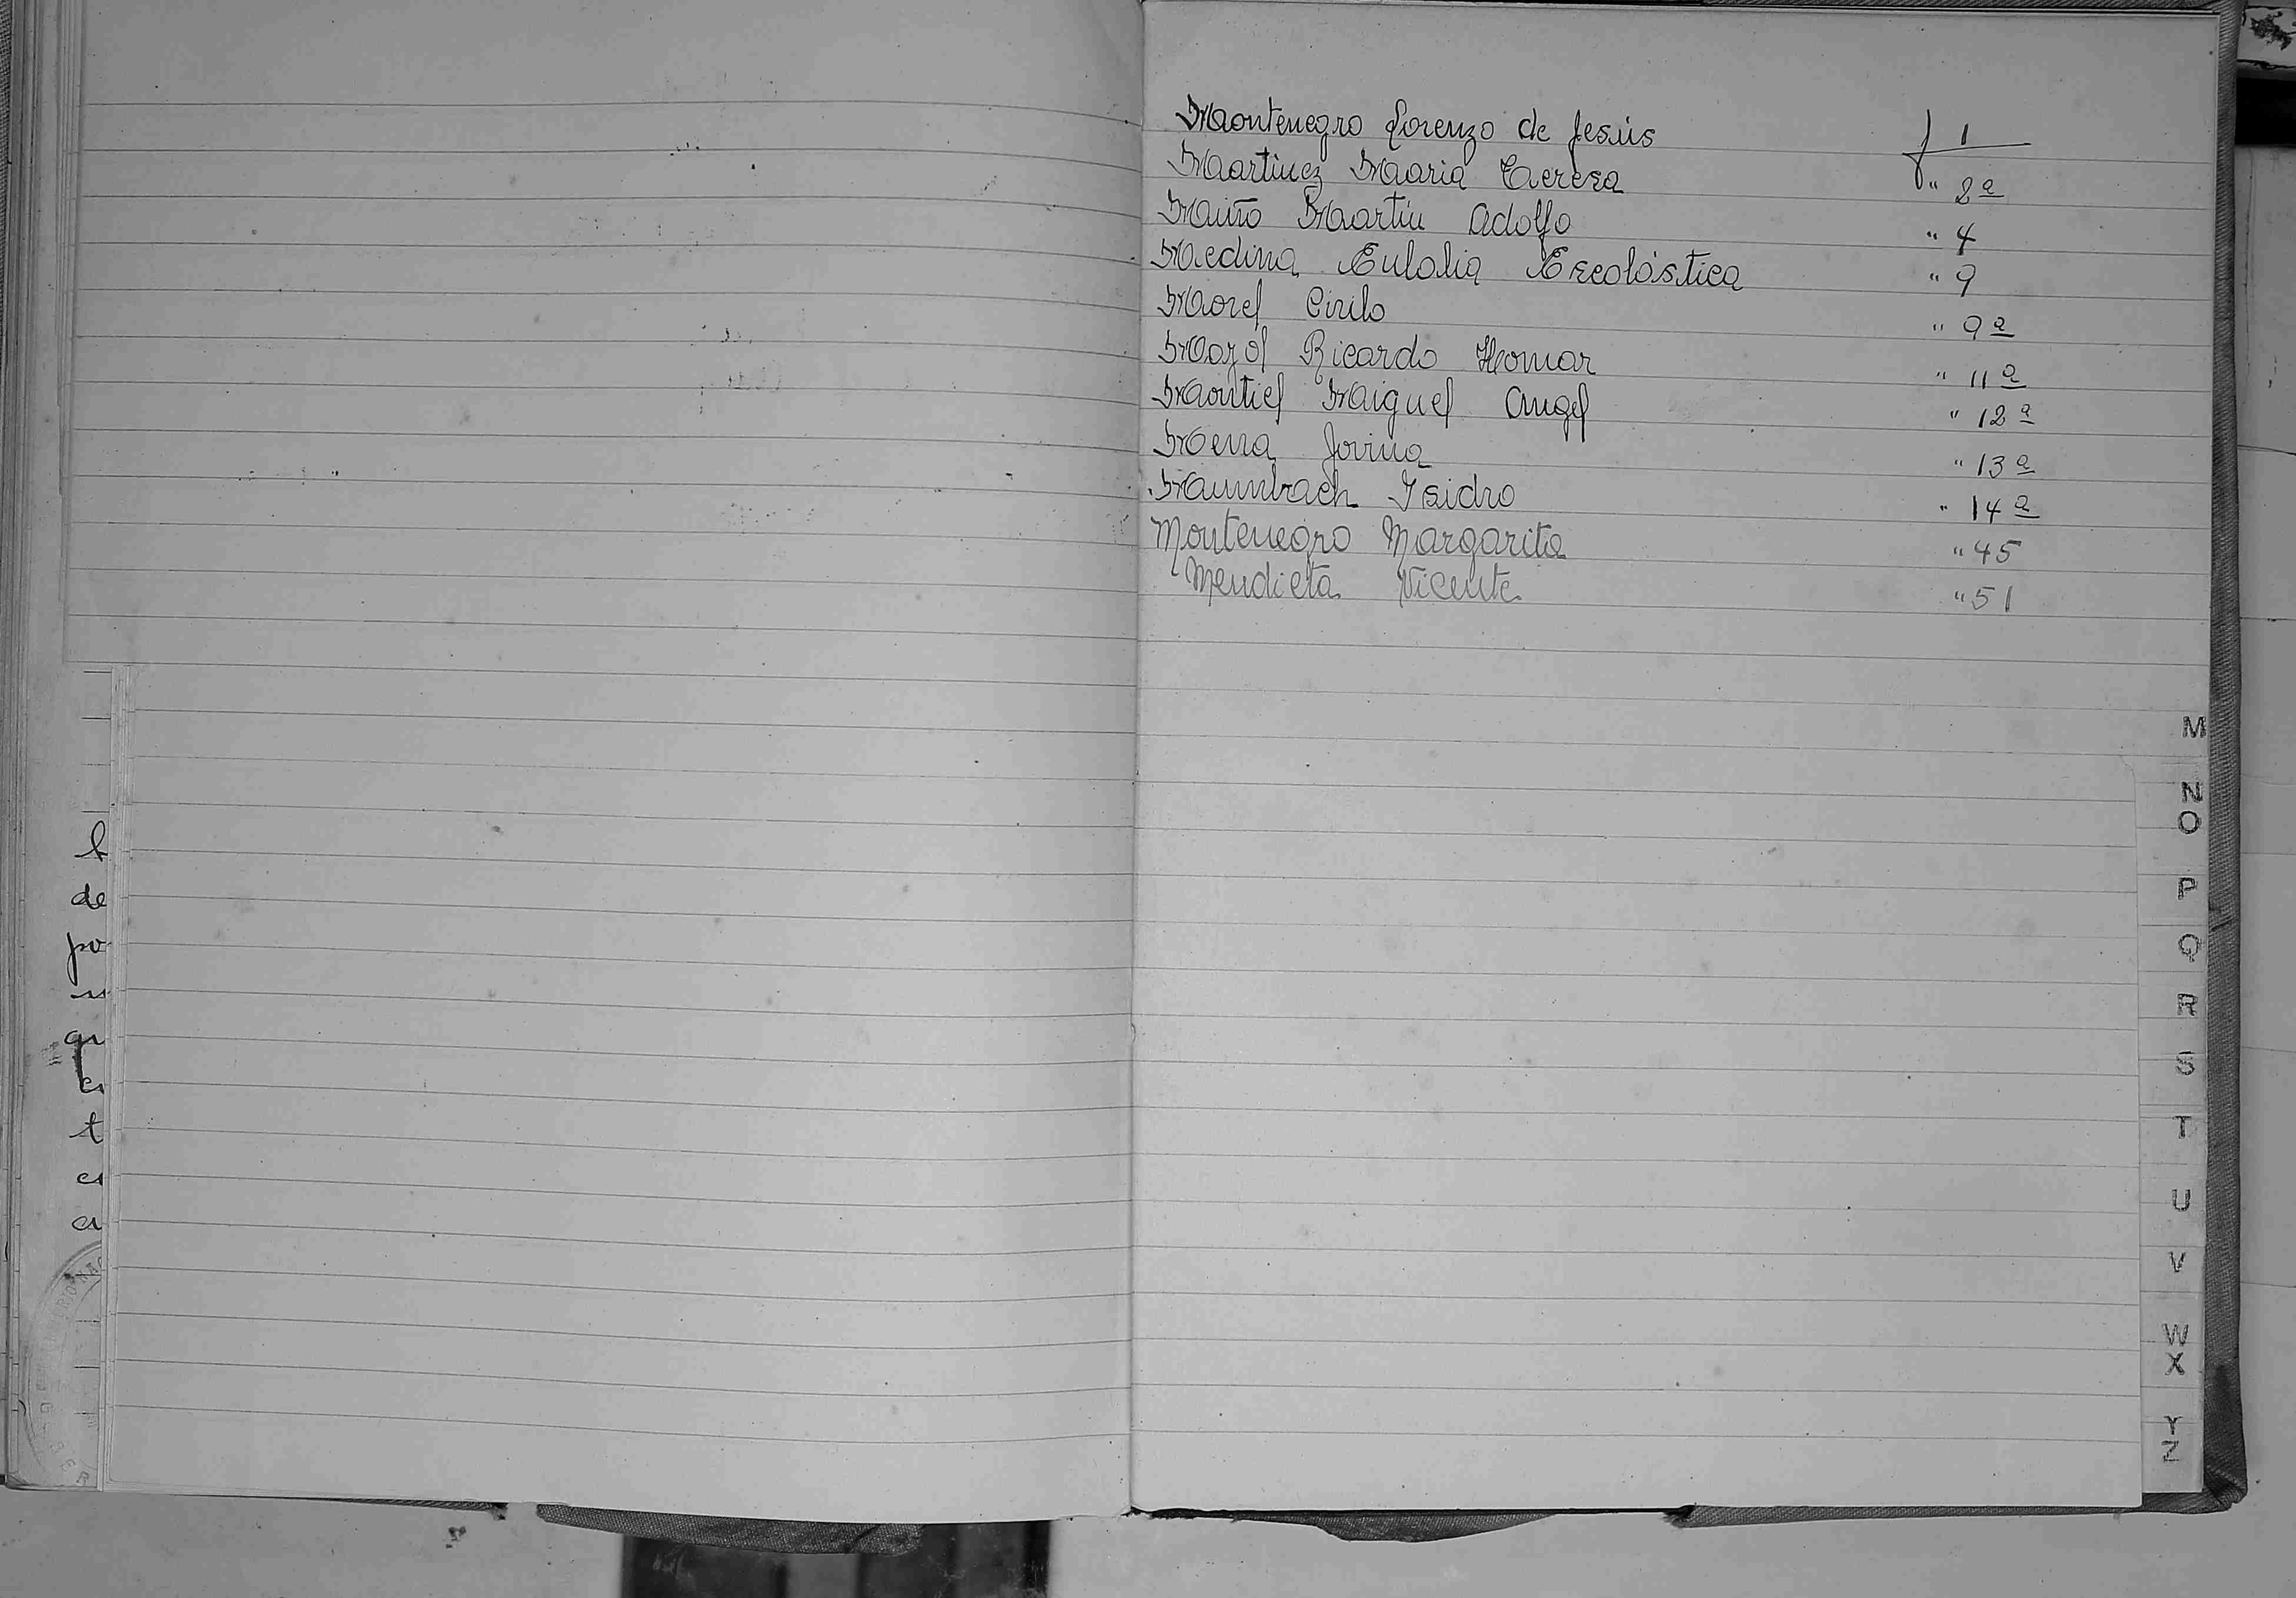 Montenegro Lorenzo de Jesús f 1
Martinez Maria Teresa " 2ª
Miño Martin Adolfo " 4
Medina Eulalia Escolástica " 9
Morel Cirilo " 9ª
Mozol Ricardo Homar " 11ª
Montiel Miguel Angel " 12ª
Mena Jovina " 13ª
Isidro " 14ª
Montenegro Margarita " 45
Mendieta Vicente " 51
M
N
O
P
Q
R
S
T
U
V
W
X
Y
Z
l
de
po
qu
t
a